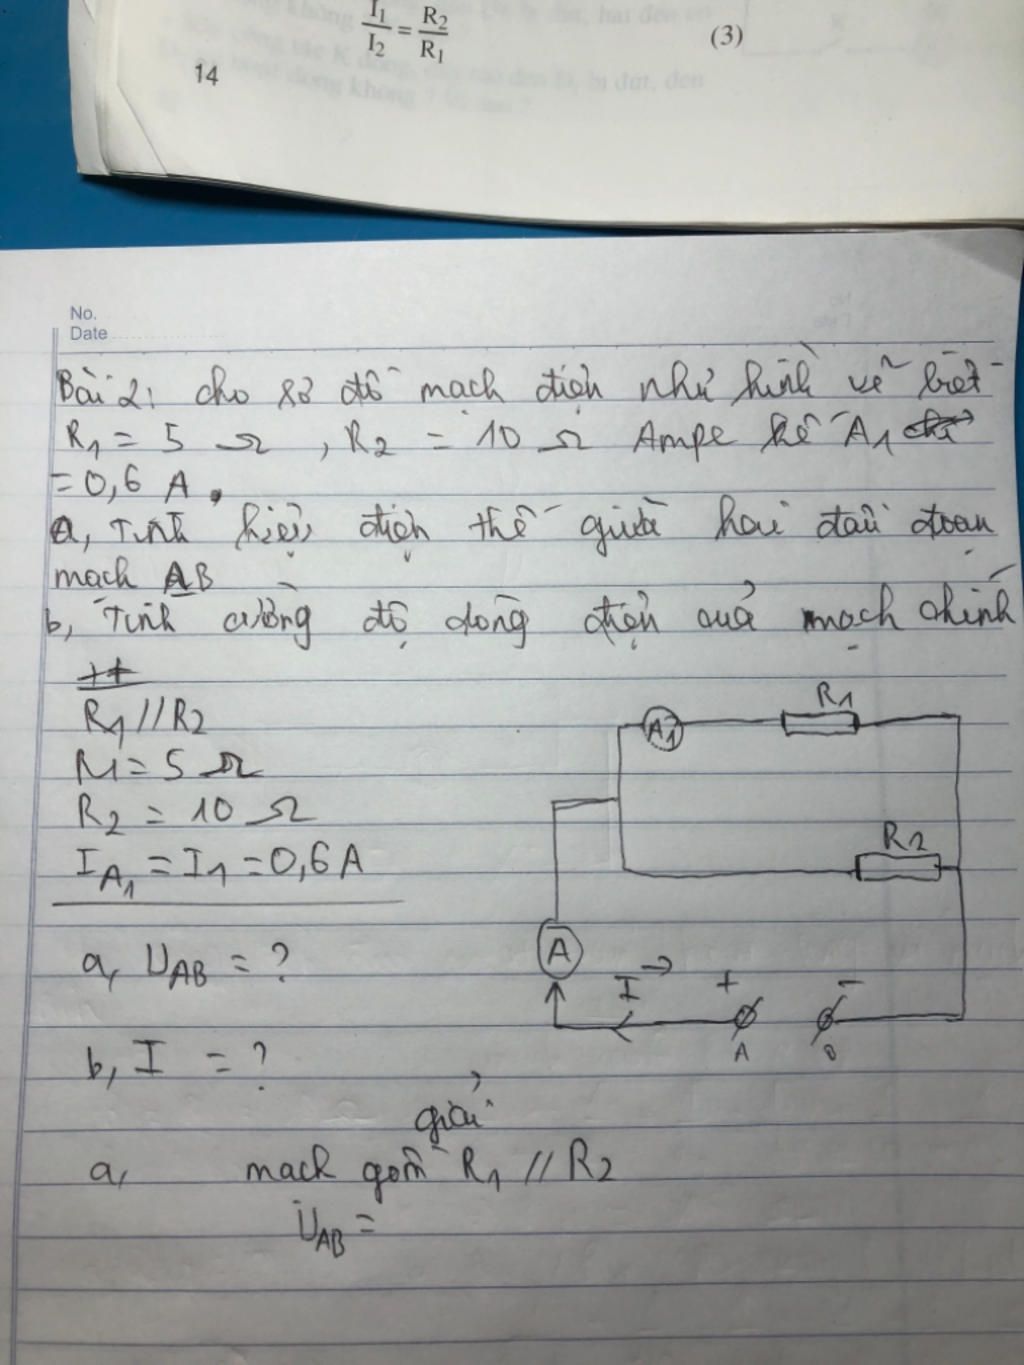 I₁/I₂ = R₂/R₁ (3)
14
No.
Date
Bài 2: cho sơ đồ mạch điện như hình vẽ biết
R₁ = 5 Ω, R₂ = 10 Ω Ampe kế A₁
= 0,6 A.
a, Tính hiệu điện thế giữa hai đầu đoạn
mạch AB
b, Tính cường độ dòng điện qua mạch chính
TT
R₁ // R₂
R₁ = 5 Ω
R₂ = 10 Ω
I_A₁ = I₁ = 0,6 A
a, U_AB = ?
b, I = ?
A₁ R₁
R₂
A
I → + -
A B
giải
a, mạch gồm R₁ // R₂
U_AB =